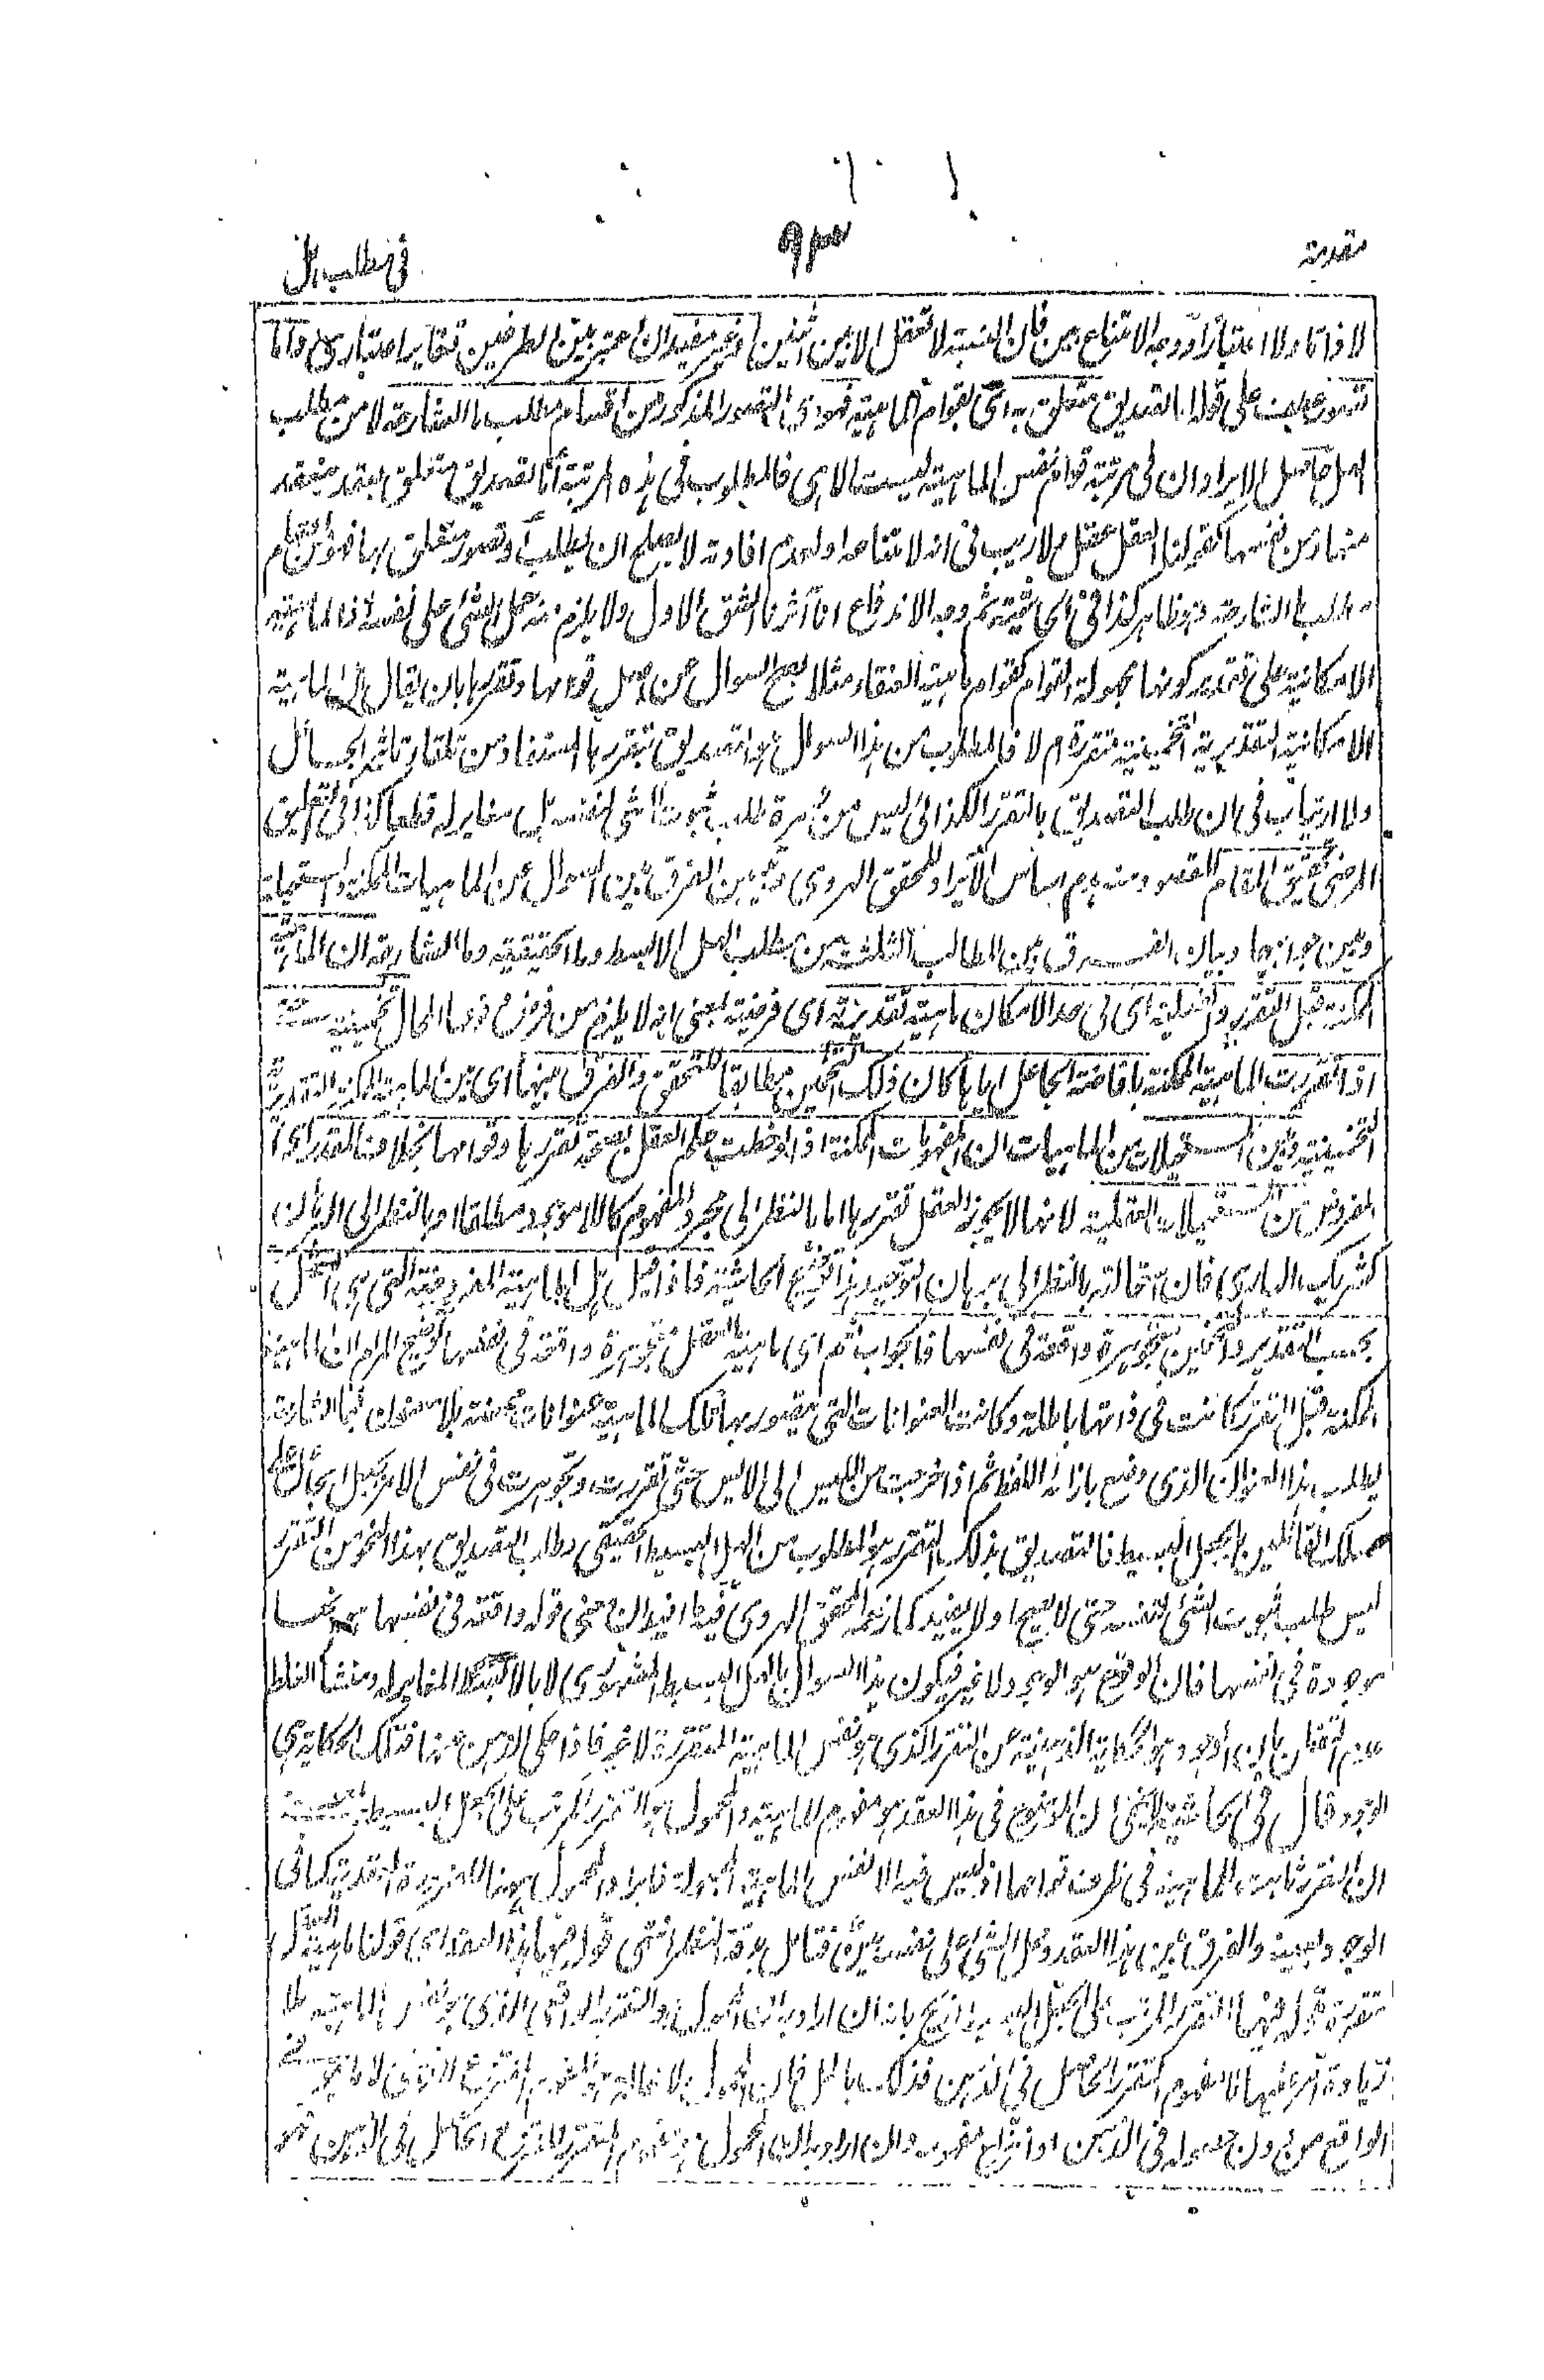 مقدمة
٩٣
فى مطلب هل
لا ذاتا ولا اعتبارا ووجه الامتناع بين فان النسبة لا تعقل الا بين اثنين وغير مفيد ان اعتبر بين الطرفين تغاير اعتبارى واما
تصور عطف على قوله اما تصديق متعلق به اى بقوام الماهية فهو ذى التصور المذكور من اقسام مطلب ما الشارحة لا من مطلب
هل حاصل الايراد ان فى مرتبة قوام نفس الماهية ليست الا هى فالمطلوب فى هذه المرتبة اما تصديق متعلق بعقد منعقد
منها ومن نفسها كقولنا العقل عقل ولا ريب فى انه لامتناعه او لعدم افادته لا يصلح ان يطلب او تصور متعلق بها فهو من اقسام
مطلب ما الشارحة وهو ظاهر كذا فى الحاشية ثم وجه الاندفاع انا آثرنا الشق الاول ولا يلزم منه حمل الشئ على نفسه اذ الماهية
الامكانية على تقدير كونها مجهولة القوام كقوام ماهية العنقاء مثلا يصح السوال عن اصل قوامها وتقررها بان يقال هل الماهية
الامكانية التقديرية التخمينية متقررة ام لا فالمطلوب من هذا السوال هو التصديق بتقررها المستفاد من تلقاء تاثير الجاعل
ولا ارتياب فى ان طلب التصديق بالتقرر الكذائى ليس من زمرة طلب ثبوت الشئ لنفسه بل مغاير له قطعا كذا فى التعليق
المرضى تحقيق المقام المقصود منه هدم اساس الايراد للمحقق الهروى وتبيين الفرق بين السوال عن الماهيات الممكنة والمستحيلة
وبين جوابها وبيان الفرق بين المطالب الثلثة من مطلب الهل الابسط وما الحقيقية وما الشارحة ان الماهية
الممكنة قبل التقرر والفعلية اى فى حد الامكان ماهية تقديرية اى فرضية بمعنى انه لا يلزم من فرض وقوعها المحال تخمينية
اذا تقررت الماهية الممكنة بافاضة الجاعل اياها كان ذلك التخمين مطابقا للتحقق والفرق بينها اى بين الماهية الممكنة التقديرية
التخمينية وبين المستحيلات من الماهيات ان المفهومات الممكنة اذا لوحظت حكم العقل بصحة تقررها وقوامها بخلاف المقدر اى
المفروض من المستحيلات العقلية لانها لا يجوز العقل تقررها اما بالنظر الى مجرد المفهوم كاللاموجود مطلقا او بالنظر الى البرهان
كشريك البارى فان استحالته بالنظر الى برهان التوحيد هذا توضيح الحاشية فاذا قيل هل الماهية المفروضة التى هى العقل
بحسب التقدير والتخمين متجوهرة واقعة فى نفسها فالجواب نعم اى ماهية العقل متجوهرة واقعة فى نفسها توضيح المرام ان الماهية
الممكنة قبل التقرر كانت فى ذاتها باطلة وكانت العنوانات التى يتصور بها تلك الماهية عنوانات محضة بلا معنون فما الشارحة
يطلب بها العنوان الذى وضع بازائه اللفظ ثم اذا خرجت من الليس الى الايس حتى تقررت وتجوهرت فى نفس الامر بجعل الجاعل
مسلك القائلين بالجعل البسيط فالتصديق بذلك التقرر هو المطلوب من الهل البسيط الحقيقى وطلب التصديق بهذا النحو من التقرر
ليس طلب ثبوت الشئ لنفسه حتى لا يصح او لا يفيد كما زعمه المحقق الهروى فيما افيد ان معنى قوله واقعة فى نفسها
موجودة فى نفسها فان الوقوع هو الوجود لا غير فيكون هذا السوال بالهل البسيط المشهورى لا بالابسط المغاير له ومنشأ الغلط
عدم التفطن بان الوجود هو الحكاية الذهنية عن التقرر الذى هو نفس الماهية المتقررة لا غير فاذا حكى الذهن عنها فتلك الحكاية هى
الوجود قال فى الحاشية ان الموضوع فى هذا العقد هو مفهوم الماهية والمحمول هو التقرر المرتب على الجعل البسيط
ان التقرر ثابت للماهية فى ظرف قوامها اذ ليس فيه الا نفس الماهية
الوجود بعينه والفرق بين هذا العقد وحمل الشئ على نفسه بين فتامل بدقة النظر انتهى قوله هذا العقد اى قولنا ماهية العقل
متقررة قوله فيها التقرر المرتب على الجعل البسيط بانه ان اراد بان المحمول هو التقرر الواقعى الذى هو نفس الماهية بلا
زيادة امر عليها لا مفهوم التقرر الحاصل فى الذهن فذلك باطل فان المحمول
الواقع من دون حصوله فى الذهن او انتزاع مفهومه وان اراد به ان المحمول هو مفهوم التقرر المنتزع الحاصل فى الذهن فهو